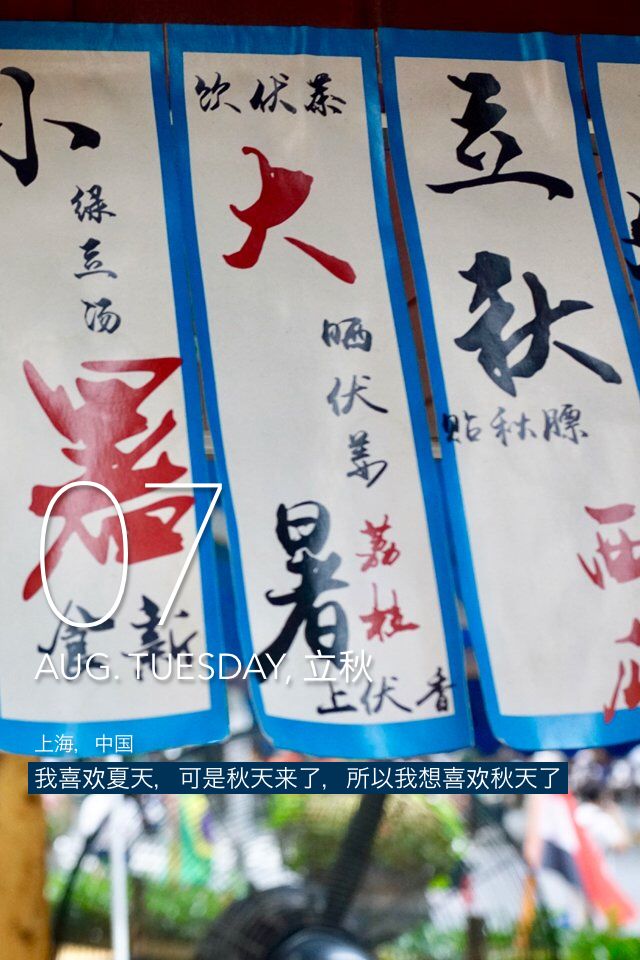 小
绿豆汤
暑
食新
饮伏茶
大
晒伏姜
暑
荔枝
上伏香
立秋
贴秋膘
西
07
AUG. TUESDAY, 立秋
上海，中国
我喜欢夏天，可是秋天来了，所以我想喜欢秋天了